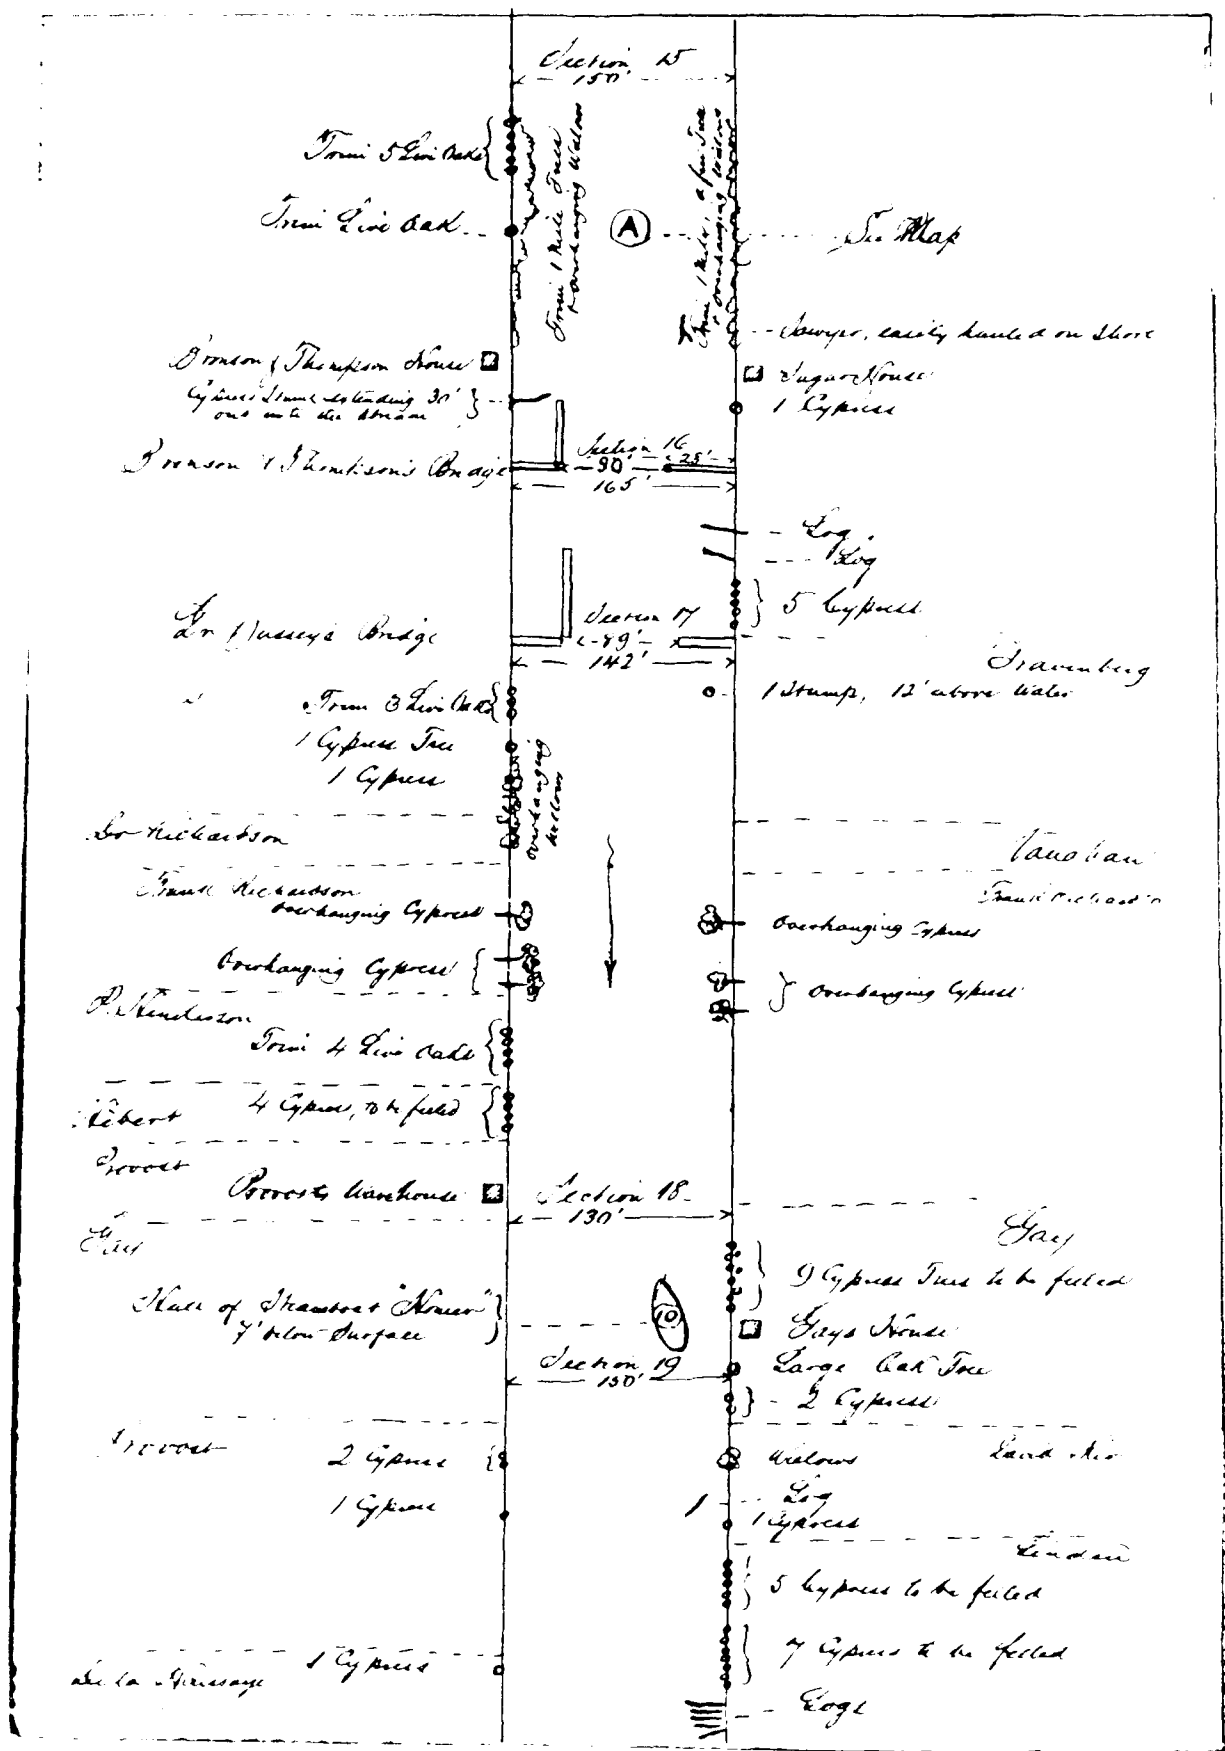 Section 15
150'
Trim 5 Live Oaks
Trim 1 Mile Trees
& overhanging Willows
Trim 1 Mile, a few Trees
& overhanging Willows
Trim Live Oak
A
See Map
Sawyer, easily hauled on Shore
Bronson & Thompson House
Sugar House
Cypress Stump extending 30'
out into the stream
1 Cypress
Bronson & Thompson's Bridge
Section 16
90'
25'
165'
Log
Log
5 Cypress
Section 17
89'
142'
Bridge
1 Stump, 12' above Water
Trim 3 Live Oaks
1 Cypress Tree
1 Cypress
overhanging
willows
Dr Richardson
Frank Richardson
Frank Richards'n
overhanging Cypress
Overhanging Cypress
Overhanging Cypress
Overhanging Cypress
Henderson
Trim 4 Live Oaks
Hebert
4 Cypress, to be felled
Provost
Provosts Warehouse
Section 18
130'
Gay
Gay
9 Cypress Trees to be felled
Hull of Steamboat "Homer"
7' below Surface
10
Gays House
Section 19
150'
Large Oak Tree
2 Cypress
Provost
2 Cypress
Willows
1 Cypress
Log
1 Cypress
5 Cypress to be felled
7 Cypress to be felled
De la Houssaye
1 Cypress
Logs